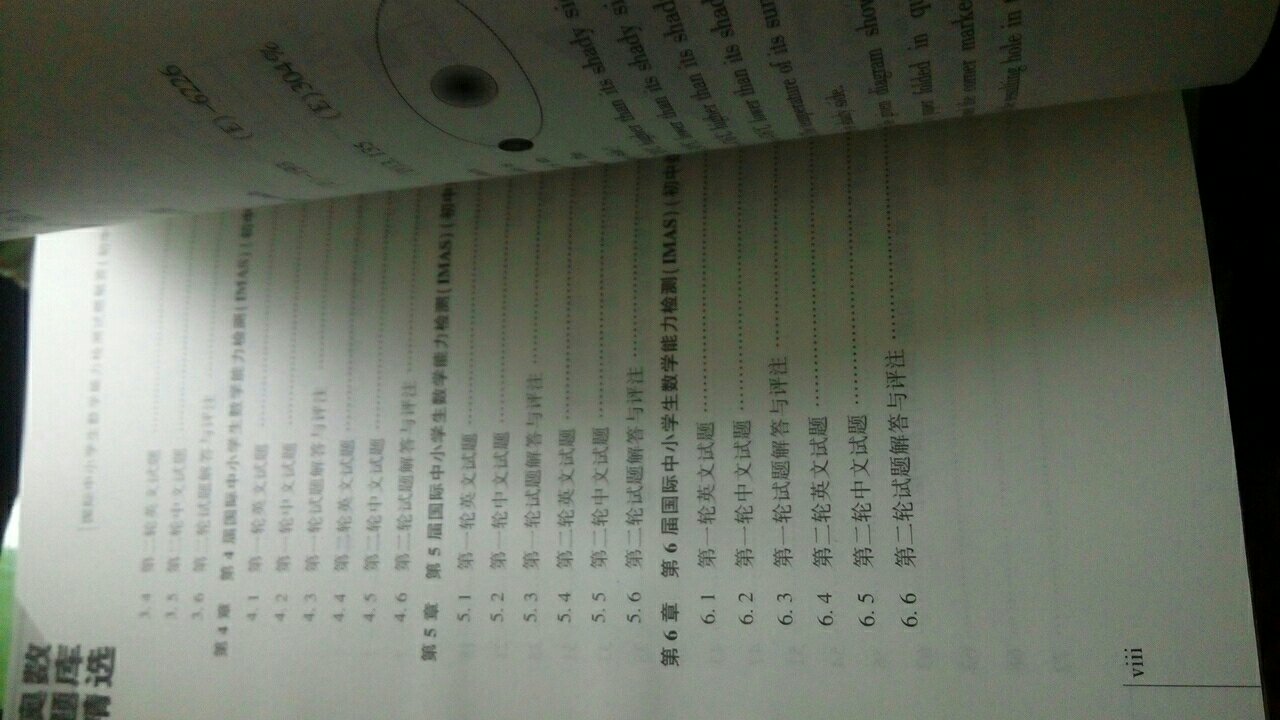 奥数
题库
精选
国际中小学生数学能力检测试题解答
3.4 第二轮英文试题
3.5 第二轮中文试题
3.6 第二轮试题解答与评注
第4章 第4届国际中小学生数学能力检测(IMAS)(初中
4.1 第一轮英文试题
4.2 第一轮中文试题
4.3 第一轮试题解答与评注
4.4 第二轮英文试题
4.5 第二轮中文试题
4.6 第二轮试题解答与评注
第5章 第5届国际中小学生数学能力检测(IMAS)(初中
5.1 第一轮英文试题
5.2 第一轮中文试题
5.3 第一轮试题解答与评注
5.4 第二轮英文试题
5.5 第二轮中文试题
5.6 第二轮试题解答与评注
第6章 第6届国际中小学生数学能力检测(IMAS)(初中
6.1 第一轮英文试题
6.2 第一轮中文试题
6.3 第一轮试题解答与评注
6.4 第二轮英文试题
6.5 第二轮中文试题
6.6 第二轮试题解答与评注
viii
(E)-6226
(E)304%
than its shady si
than its shady si
lower than its shad
higher than its shad
lower than its shad
temperature of its sur
side.
diagram show
folded in qu
corner marked
resulting hole in t